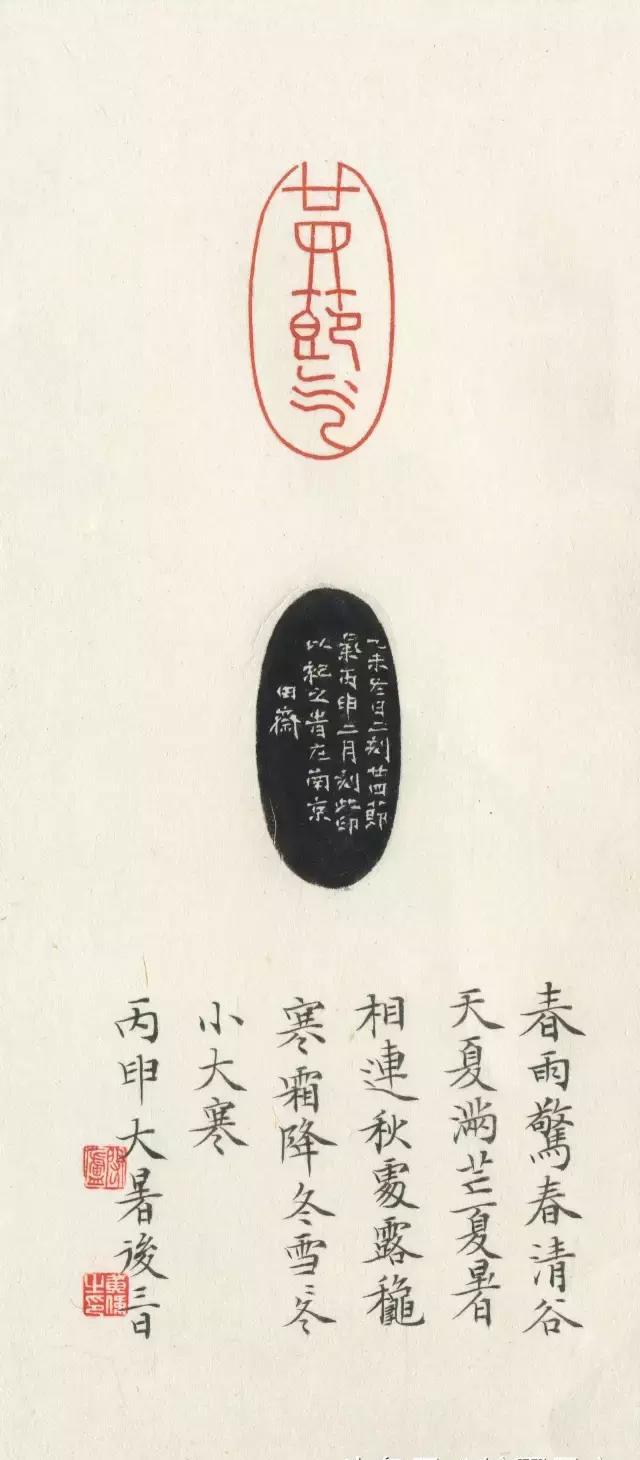 廿四節气
乙未冬日二刻廿四節
氣丙申二月刻此印
以紀之皆在南京
田齋
春雨驚春清谷
天夏滿芒夏暑
相連秋處露龝
寒霜降冬雪〻冬
小大寒
丙申大暑後三日